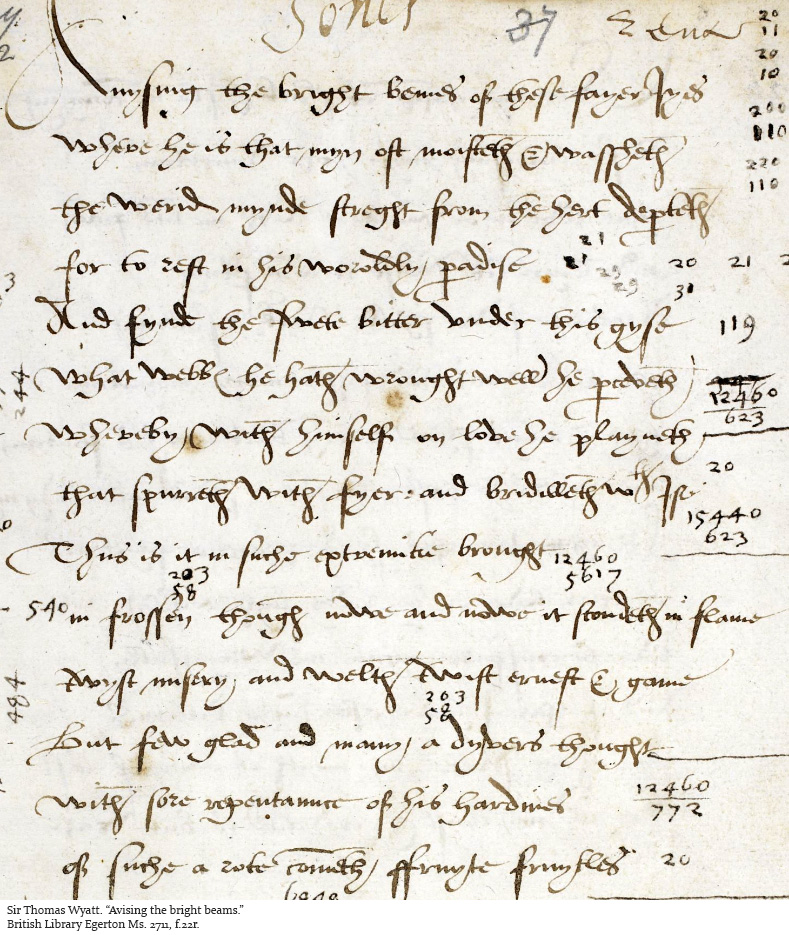 37
20
11
20
10
Avysing the bright bemes of these fayer Iyes
200
110
where he is that myn oft moisteth & wassheth
220
110
the werid mynde streght from the hert depteth
21
for to rest in his woroldly padise 21 20 21 2
29
29 31
3
And fynde the swete bitter under this gyse 119
244
what webbs he hath wrought well he pceveth
12460
623
whereby with himself on love he playneth
20
that spurreth with fyer: and bridilleth wt Ise
15440
623
Thus is it in suche extremitie brought 12460
5617
203
58
540 in frossen though nowe and nowe it stondeth in flame
twyst misery and welth twist ernest & game
203
58
484
But few glad and many a dyvers thought
with sore repentaunce of his hardines
12460
772
of suche a rote cometh ffruyte fruytles 20
Sir Thomas Wyatt. “Avising the bright beams.”
British Library Egerton Ms. 2711, f.22r.